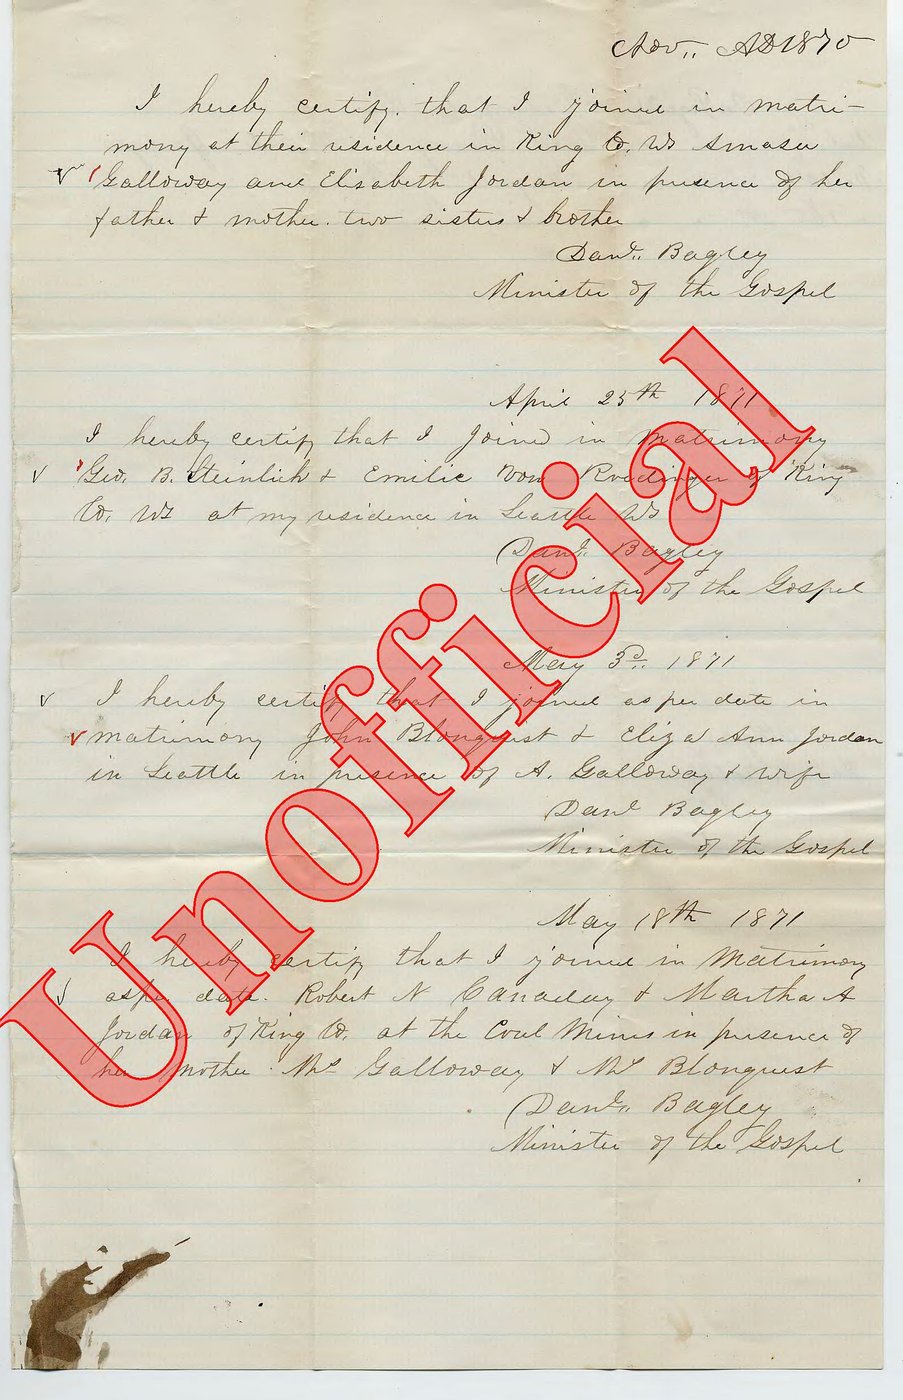 Nov,, AD 1870
I hereby certify. that I joined in matri-
mony at their residence in King Co, WT Amasa
Galloway and Elisabeth Jordan in presence of her
father & mother. two sisters & brother
Danl,, Bagley
Minister of the Gospel
April 25th 1871
I hereby certify that I joined in matrimony
Geo. B. Steinlich & Emilie Von of King
Co, WT at my residence in Seattle WT
Danl. Bagley
Minister of the Gospel
May 3d,, 1871
I hereby certify that I joined as per date in
matrimony John Blonquest & Eliza Ann Jordan
in Seattle in presence of A. Galloway & wife
Danl Bagley
Minister of the Gospel
May 18th 1871
I hereby certify that I joined in Matrimony
as per date. Robert N Canaday & Martha A
Jordan of King Co, at the Coal Mines in presence of
her mother. Mrs Galloway & Mrs Blonquest
Danl,, Bagley
Minister of the Gospel
Unofficial